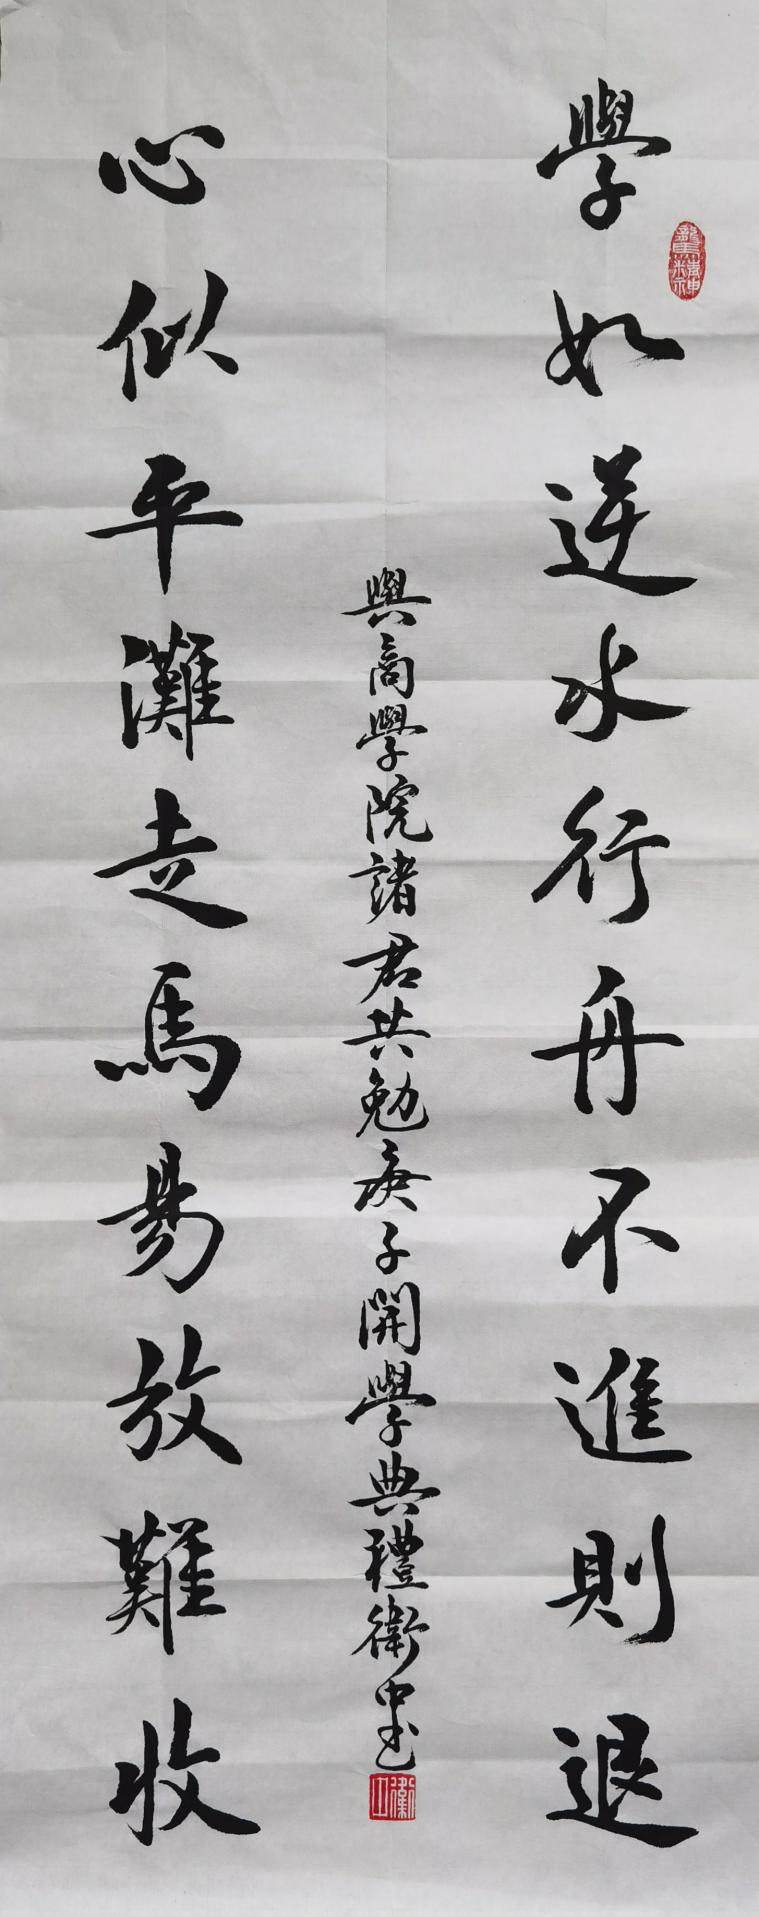 學如逆水行舟不進則退
心似平灘走馬易放難收
與商學院諸君共勉庚子開學典禮衛中書
龍馬精神